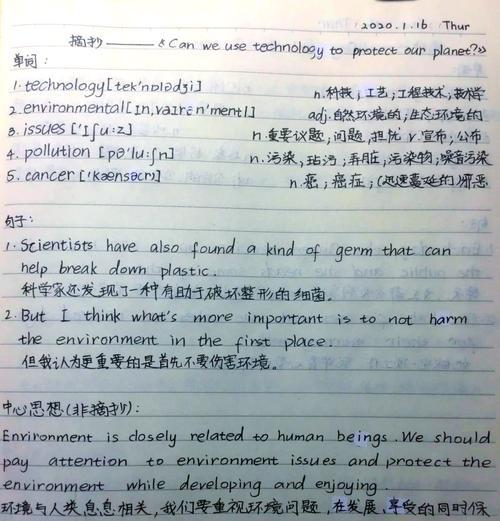 2020.1.16 Thur
摘抄——《Can we use technology to protect our planet?》
单词:
1. technology[tek'nɒlədʒi] n.科技;工艺;工程技术;技术学
2. environmental[ɪn,vaɪrən'mentl] adj.自然环境的;生态环境的
3. issues['ɪʃu:z] n.重要议题;问题;担忧 v.宣布;公布
4. pollution[pə'lu:ʃn] n.污染;玷污;弄脏;污染物;噪音污染
5. cancer['kænsə(r)] n.癌;癌症;(迅速蔓延的)邪恶
句子:
1. Scientists have also found a kind of germ that can
help break down plastic.
科学家还发现了一种有助于破坏整形的细菌。
2. But I think what's more important is to not harm
the environment in the first place.
但我认为更重要的是首先不要伤害环境。
中心思想(非摘抄):
Environment is closely related to human beings. We should
pay attention to environment issues and protect the
environment while developing and enjoying.
环境与人类息息相关,我们要重视环境问题,在发展、享受的同时保